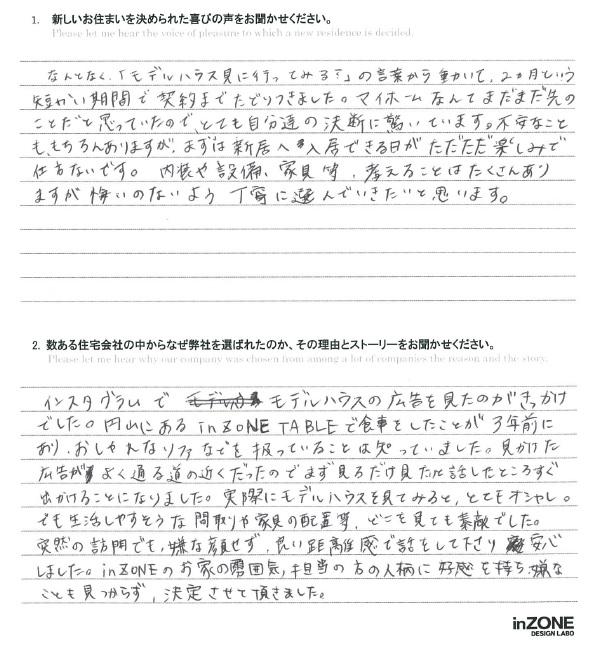 1. 新しいお住まいを決められた喜びの声をお聞かせください。
Please let me hear the voice of pleasure to which a new residence is decided.
なんとなく、「モデルハウス見に行ってみる?」の言葉から動いて、2ヵ月という
短かい期間で契約までたどりつきました。マイホームなんてまだまだ先の
ことだと思っていたので、とても自分達の決断に驚いています。不安なこと
も、もちろんありますが、まずは新居へ入居できる日がただただ楽しみで
仕方ないです。内装や設備、家具等、考えることはたくさんあり
ますが悔いのないよう丁寧に選んでいきたいと思います。
2. 数ある住宅会社の中からなぜ弊社を選ばれたのか、その理由とストーリーをお聞かせください。
Please let me hear why our company was chosen from among a lot of companies the reason and the story.
インスタグラムで モデルハウスの広告を見たのがきっかけ
でした。円山にある inZONE TABLEで食事をしたことが3年前に
あり、おしゃれなソファなどを扱っていることは知っていました。見かけた
広告がよく通る道の近くだったのでまず見るだけ見たいと話したところすぐ
出かけることになりました。実際にモデルハウスを見てみると、とてもオシャレ。
でも生活しやすそうな間取りや家具の配置等、どこを見ても素敵でした。
突然の訪問でも、嫌な顔せず、良い距離感で話をして下さり 安心
しました。inZONEのお家の雰囲気、担当の方の人柄に好感を持ち、嫌な
ことも見つからず、決定させて頂きました。
inZONE
DESIGN LABO